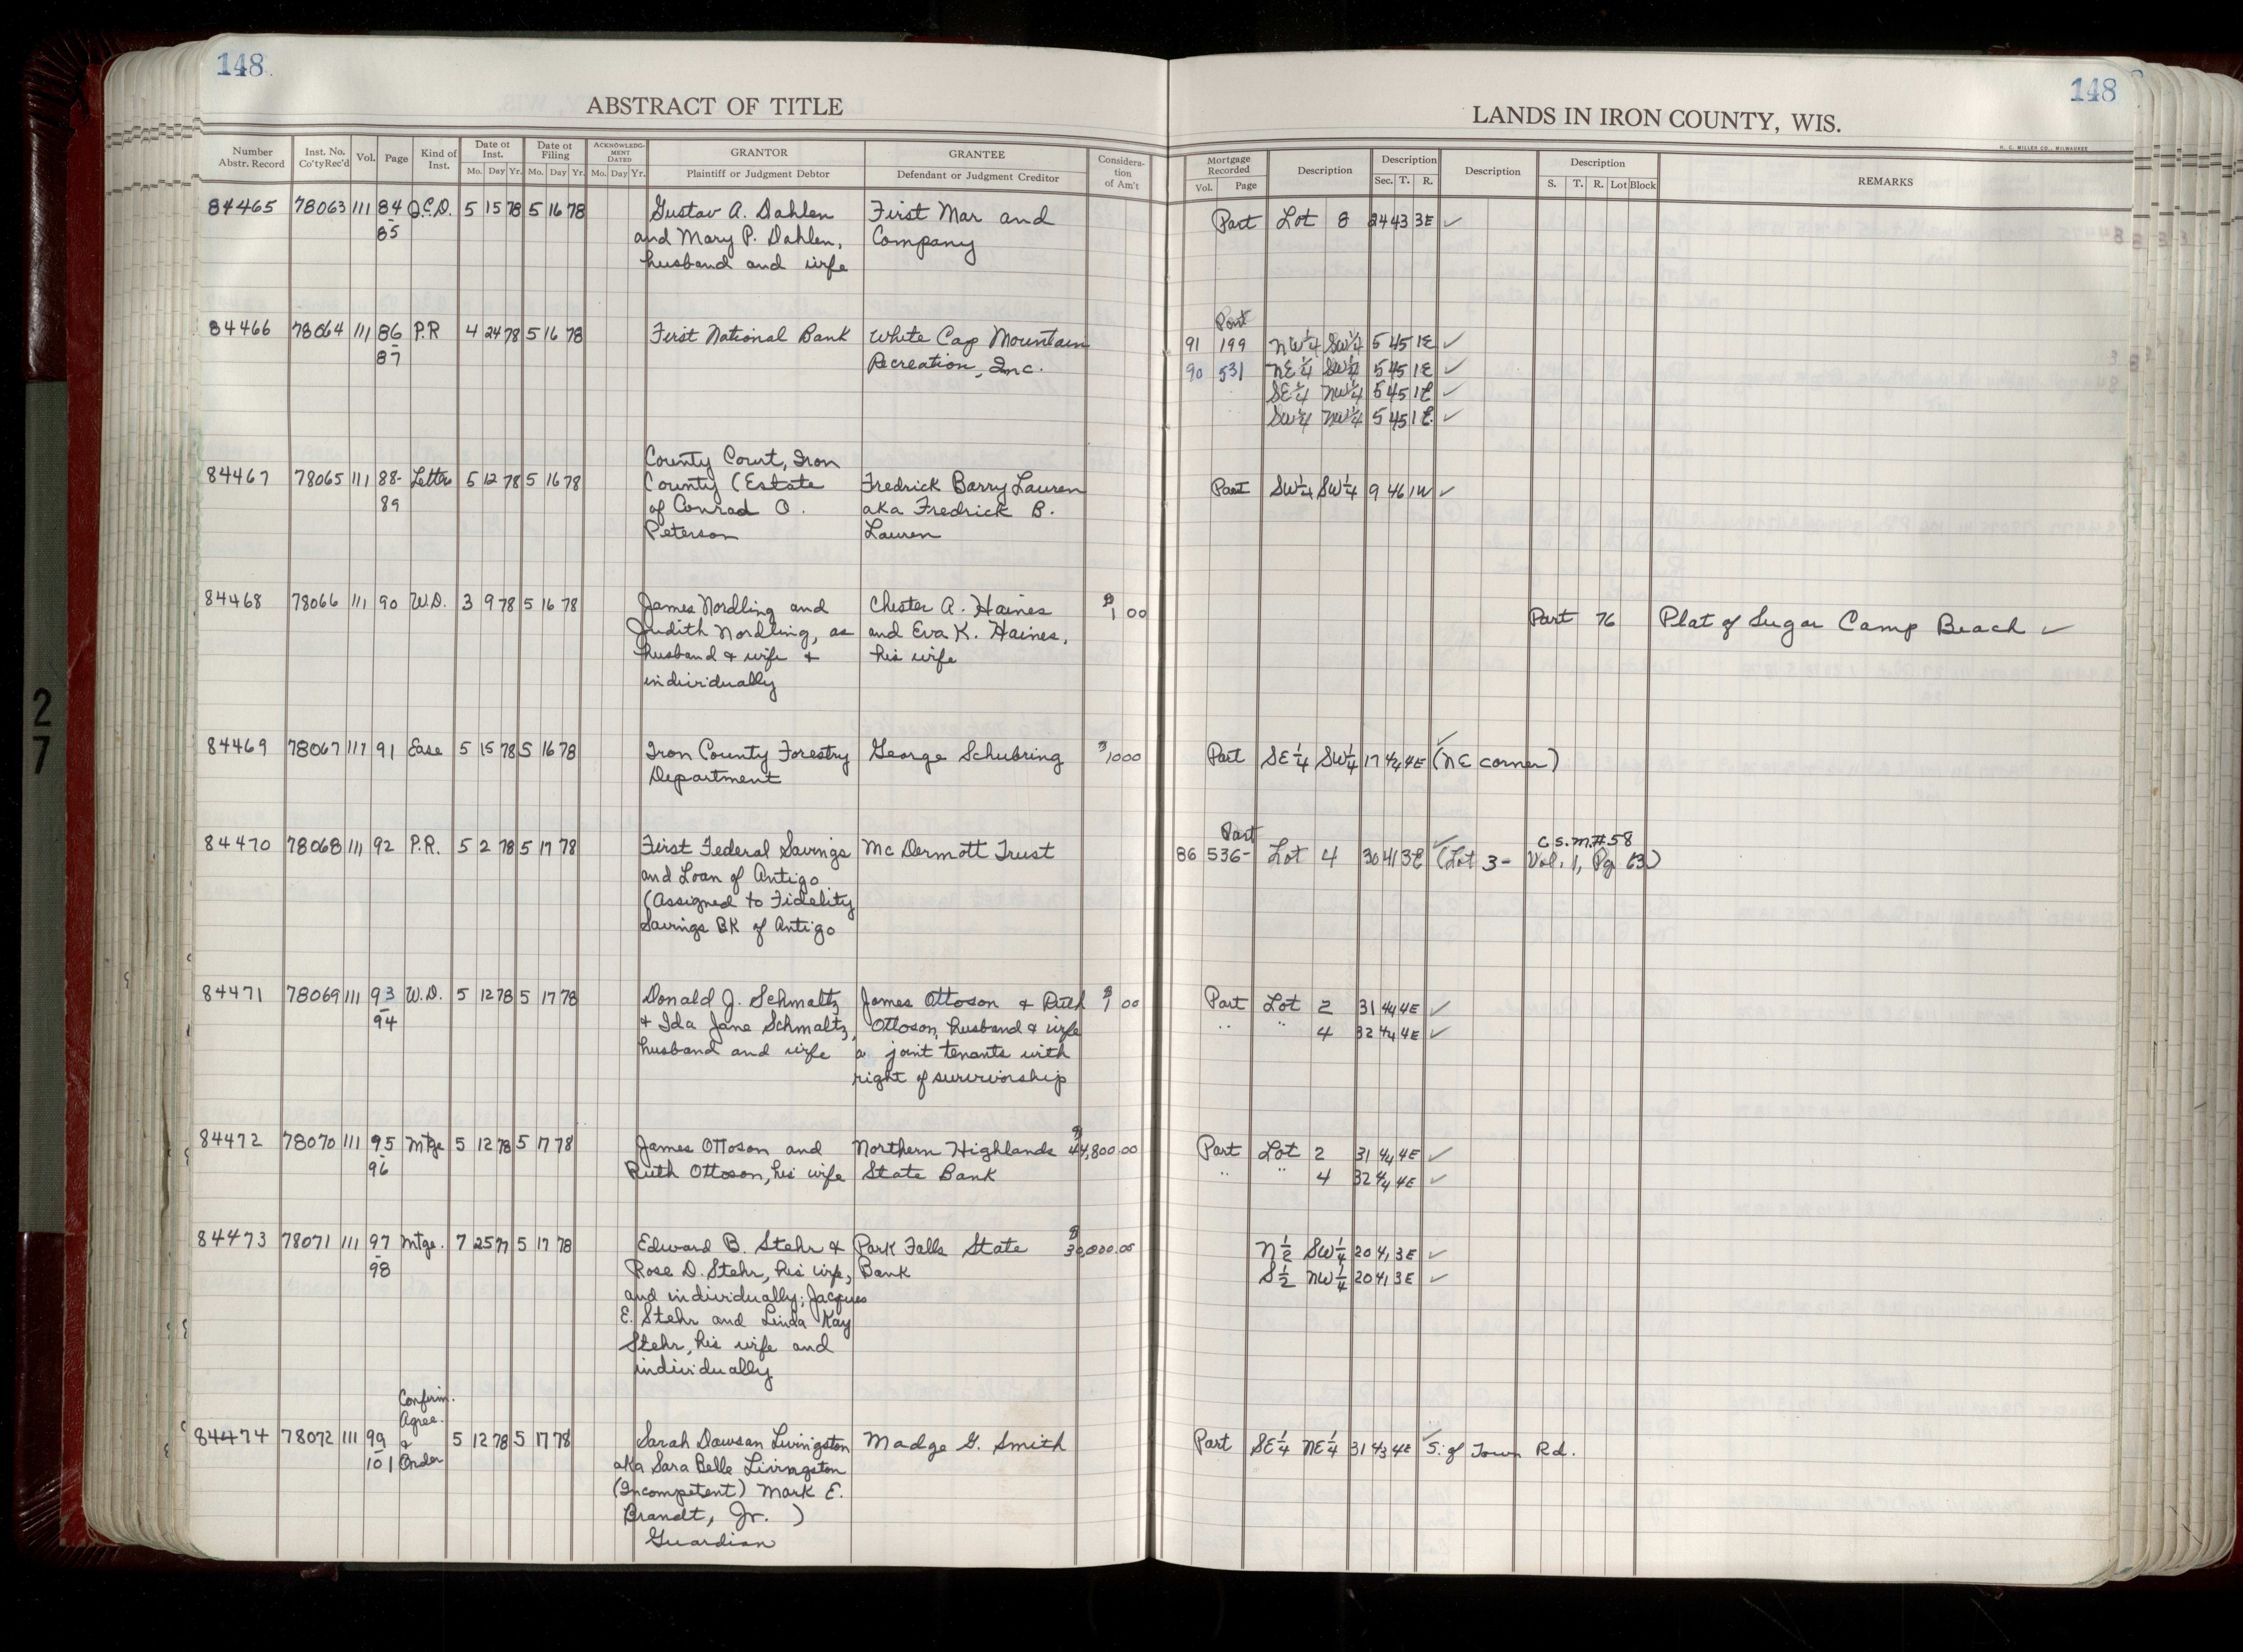 148
ABSTRACT OF TITLE
Number Abstr. Record | Inst. No. Co'ty Rec'd | Vol. | Page | Kind of Inst. | Date of Inst. Mo. Day Yr. | Date of Filing Mo. Day Yr. | ACKNOWLEDGMENT DATED Mo. Day Yr. | GRANTOR Plaintiff or Judgment Debtor | GRANTEE Defendant or Judgment Creditor | Consideration of Am't
84465 78063 111 84 Q.C.D. 5 15 78 5 16 78 Gustav A. Dahlen First Mar and
85 and Mary P. Dahlen, Company
husband and wife
84466 78064 111 86 P.R 4 24 78 5 16 78 First National Bank White Cap Mountain
87 Recreation, Inc.
County Court, Iron
84467 78065 111 88- Letters 5 12 78 5 16 78 County (Estate Fredrick Barry Lauren
89 of Conrad O. aka Fredrick B.
Peterson Lauren
84468 78066 111 90 W.D. 3 9 78 5 16 78 James Nordling and Chester A. Haines $1 00
Judith Nordling, as and Eva K. Haines,
husband & wife & his wife
individually
84469 78067 111 91 Ease 5 15 78 5 16 78 Iron County Forestry George Schubring $1000
Department
84470 78068 111 92 P.R. 5 2 78 5 17 78 First Federal Savings Mc Dermott Trust
and Loan of Antigo
(Assigned to Fidelity
Savings BK of Antigo
84471 78069 111 93 W.D. 5 12 78 5 17 78 Donald J. Schmaltz James Ottoson & Ruth $1 00
94 & Ida Jane Schmaltz, Ottoson, husband & wife
husband and wife a joint tenants with
right of survivorship
84472 78070 111 95 Mtge 5 12 78 5 17 78 James Ottoson and Northern Highlands $44,800.00
96 Ruth Ottoson, his wife State Bank
84473 78071 111 97 Mtge. 7 25 77 5 17 78 Edward B. Stehr & Park Falls State $30,000.00
98 Rose D. Stehr, his wife, Bank
and individually; Jacques
E. Stehr and Linda Kay
Stehr, his wife and
individually
Confirm.
Agree.
84474 78072 111 99 & 5 12 78 5 17 78 Sarah Dawson Livingston Madge G. Smith
101 Order aka Sara Belle Livingston
(Incompetent) Mark E.
Brandt, Jr. )
Guardian
148
LANDS IN IRON COUNTY, WIS.
H. C. MILLER CO., MILWAUKEE
Mortgage Recorded Vol. Page | Description | Description Sec. T. R. | Description | Description S. T. R. Lot Block | REMARKS
Part Lot 8 24 43 3E ✓
Part
91 199 NW¼ SW¼ 5 45 1E ✓
90 531 NE¼ SW¼ 5 45 1E ✓
SE¼ NW¼ 5 45 1E ✓
SW¼ NW¼ 5 45 1E ✓
Part SW¼ SW¼ 9 46 1W ✓
Part 76 Plat of Sugar Camp Beach ✓
Part SE¼ SW¼ 17 42 4E ✓ (NE corner)
Part C.S.M.#58
86 536- Lot 4 30 41 3E ✓ (Lot 3- Vol. 1, Pg 63)
Part Lot 2 31 44 4E ✓
" " 4 32 44 4E ✓
Part Lot 2 31 44 4E ✓
" " 4 32 44 4E ✓
N½ SW¼ 20 41 3E ✓
S½ NW¼ 20 41 3E ✓
Part SE¼ NE¼ 31 43 4E ✓ S. of Town Rd.
27